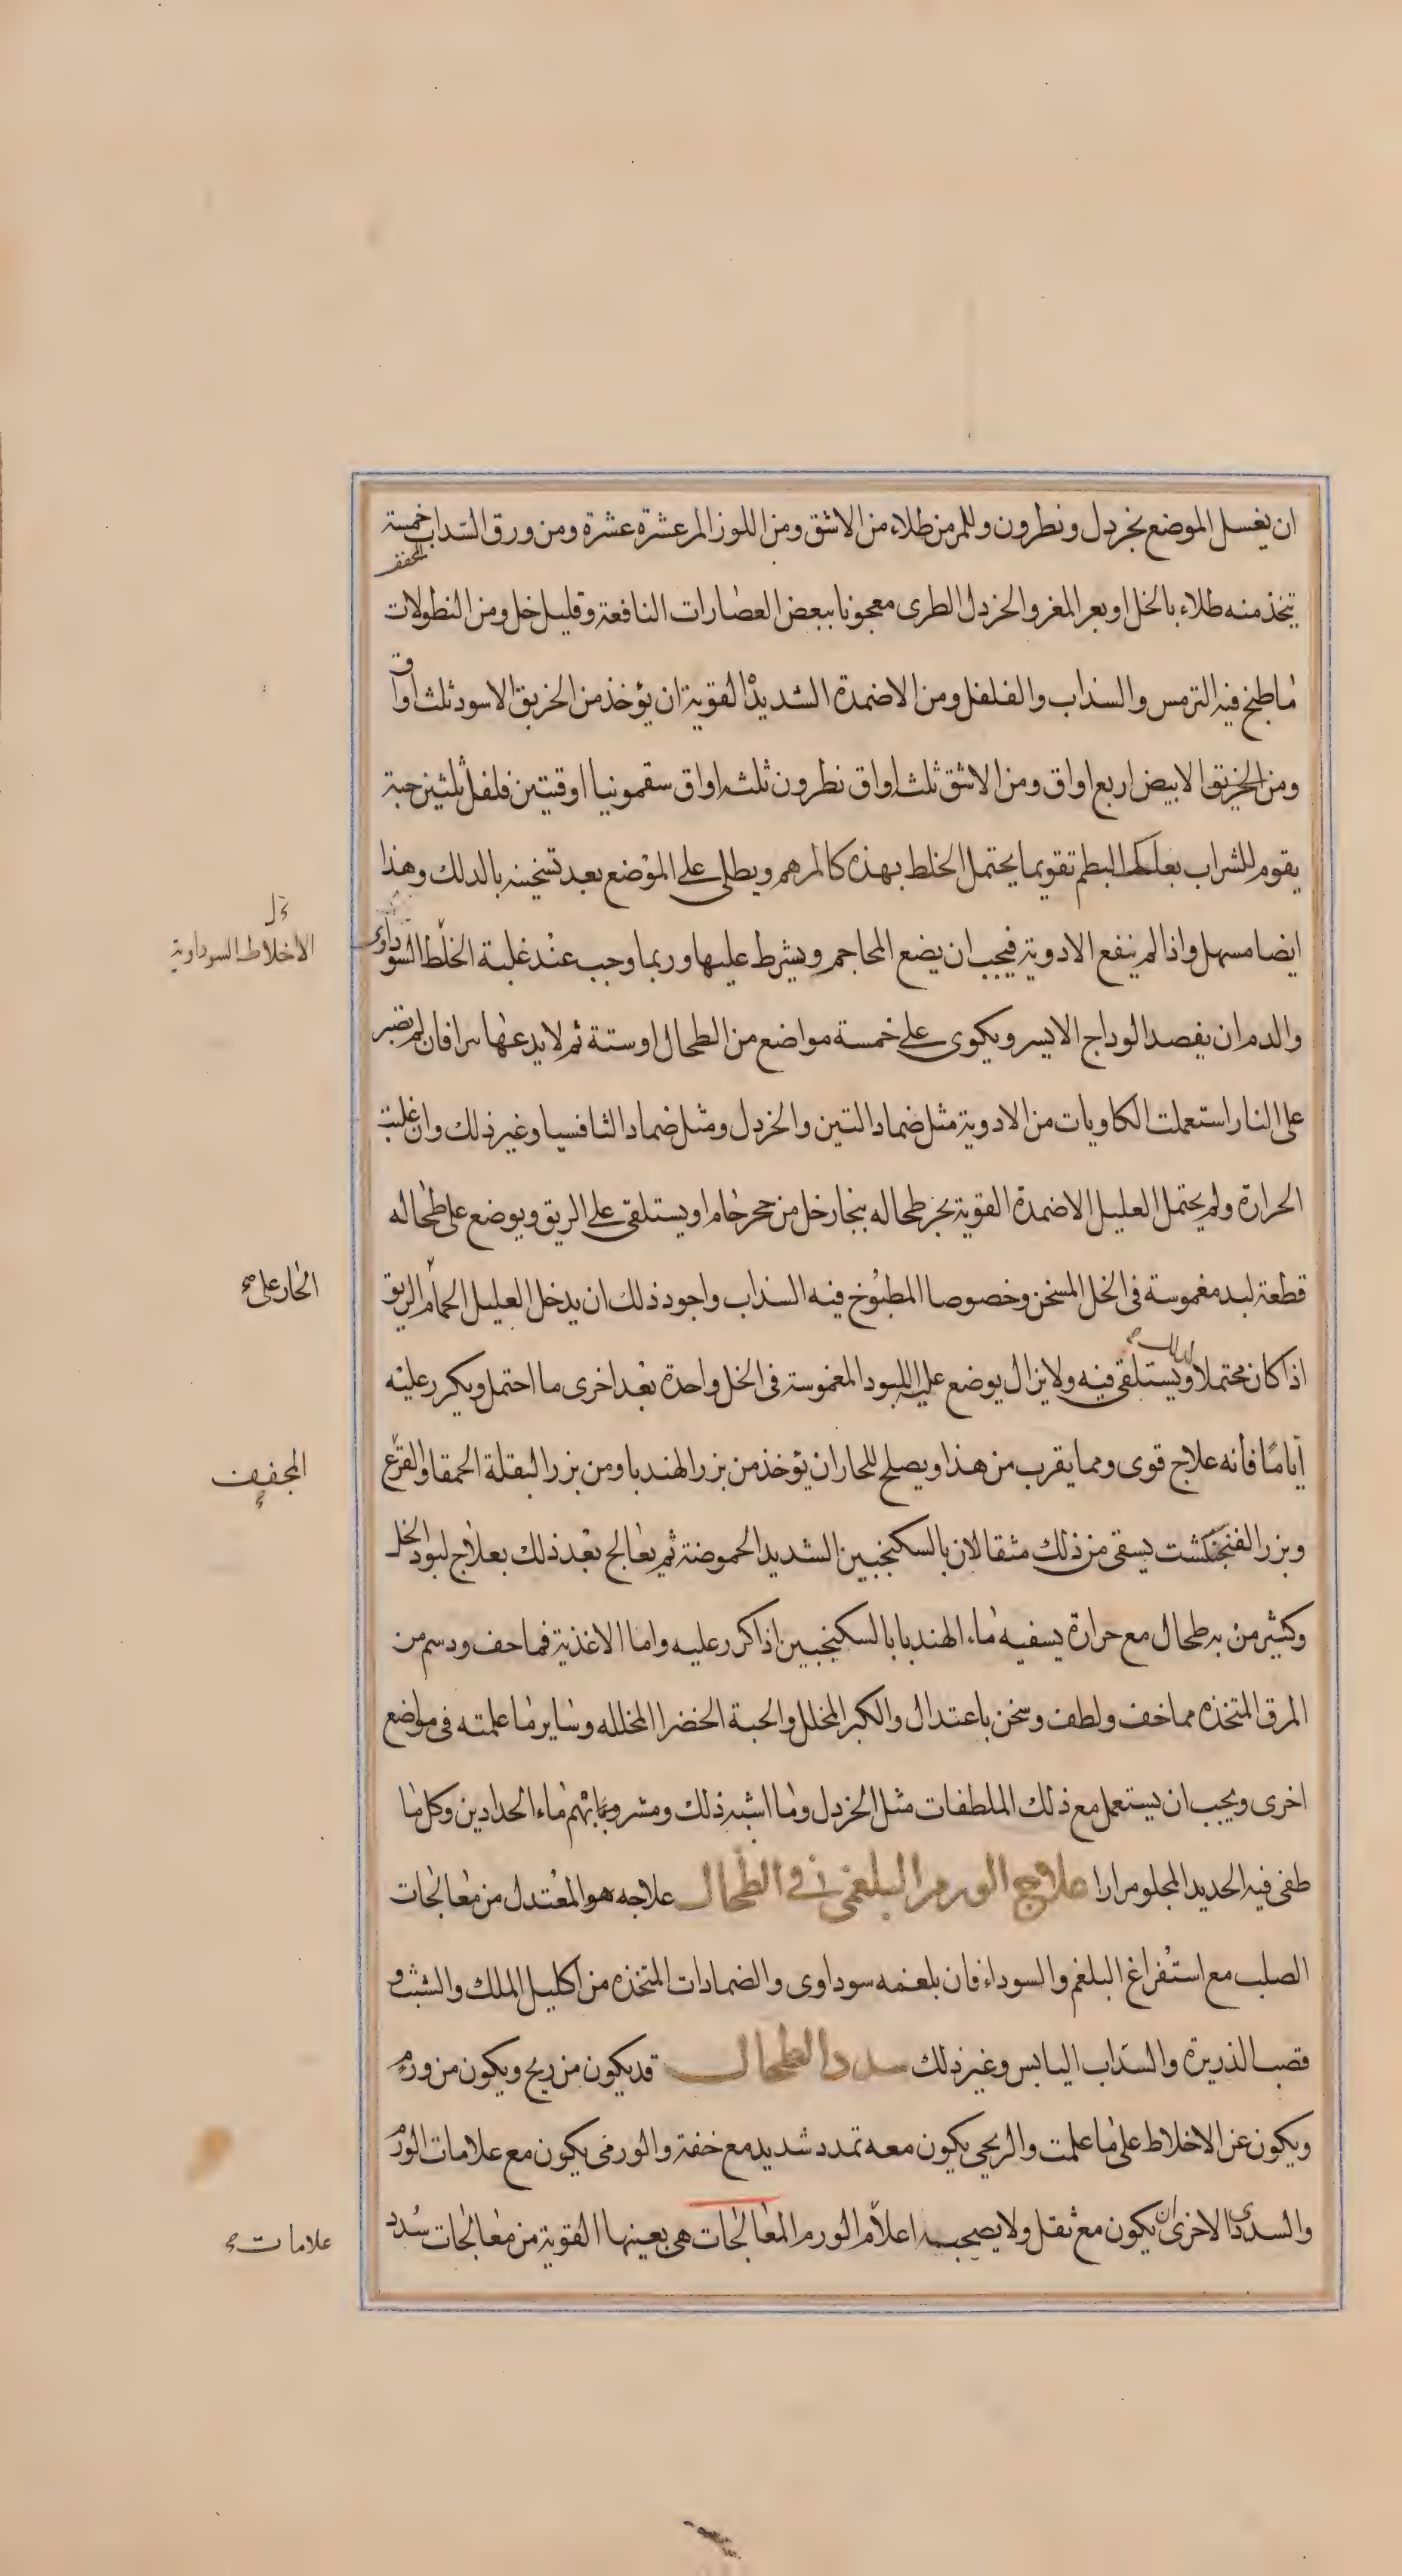 ان يغسل الموضع بخردل ونطرون وللمرمن طلاء من الاشق ومن اللوز المر عشرة عشرة ومن ورق السداب خمسة
المجفف
يتخذ منه طلاء بالخل او بعر المغر والخردل الطرى معجونا ببعض العصارات النافعة وقليل خل ومن النطولات
ما طبخ فيه الترمس والسذاب والفلفل ومن الاضمدة الشديدة القوية ان يؤخذ من الخربق الاسود ثلث اواق
ومن الخربق الابيض اربع اواق ومن الاشق ثلث اواق نطرون ثلثه اواق سقمونيا اوقيتين فلفل ثلثين حبة
يقوم للشراب بعلك البطم تقويما يحتمل الخلط بهذه كالمرهم ويطلى على الموضع بعد تسخينه بالدلك وهذا
ايضا مسهل واذا لم ينفع الادوية فيجب ان يضع المحاجم ويشرط عليها وربما وجب عند غلبة الخلط السوداوى
الاخلاط السوداوية
والدم ان يفصد الوداج الايسر ويكوى على خمسة مواضع من الطحال او ستة ثم لا يدعها فان لم يصبر
على النار استعملت الكاويات من الادوية مثل ضماد التين والخردل ومثل ضماد الثافسيا وغير ذلك وان غلبت
الحرارة ولم يحتمل العليل الاضمدة القوية بخر طحاله ببخار خل من حجر خام او يستلقى على الريق ويوضع على طحاله
قطعة لبد مغموسة فى الخل المسخن وخصوصا المطبوخ فيه السذاب واجود ذلك ان يدخل العليل الحمام الريق
الحار على صح
اذا كان محتملا ويستلقى فيه ولا يزال يوضع عليه اللبود المغموسة فى الخل واحدة بعد اخرى ما احتمل ويكرر عليه
اياما فانه علاج قوى ومما يقرب من هذا ويصلح للحار ان يؤخذ من بزر الهندبا ومن بزر البقلة الحمقا والقرع
المجفف
وبزر الفنجنكشت يسقى من ذلك مثقالان بالسكنجبين الشديد الحموضة ثم يعالج بعد ذلك بعلاج لبود الخل
وكثير من به طحال مع حرارة يسفيه ماء الهندبا بالسكنجبين اذا كرر عليه واما الاغذية فما خف ودسم من
المرق المتخذه مما خف ولطف وسخن باعتدال والكبر المخلل والحبة الخضرا المخلله وساير ما علمته فى مواضع
اخرى ويجب ان يستعمل مع ذلك الملطفات مثل الخردل وما اشبه ذلك ومشروباتهم ماء الحدادين وكل ما
طفى فيه الحديد المجلو مرارا علاج الورم البلغمى فى الطحال علاجه هو المعتدل من معالجات
الصلب مع استفراغ البلغم والسوداء فان بلغمه سوداوى والضمادات المتخذه من اكليل الملك والشبث و
قصب الذريرة والسذاب اليابس وغير ذلك سدد الطحال قد يكون من ريح ويكون من ورم
ويكون عن الاخلاط على ما علمت والريحى يكون معه تمدد شديد مع خفة والورمى يكون مع علامات الورم
والسدد الاخرى يكون مع ثقل ولا يصحبه اعلام الورم المعالجات هى بعينها القوية من معالجات سدد
علامات صح